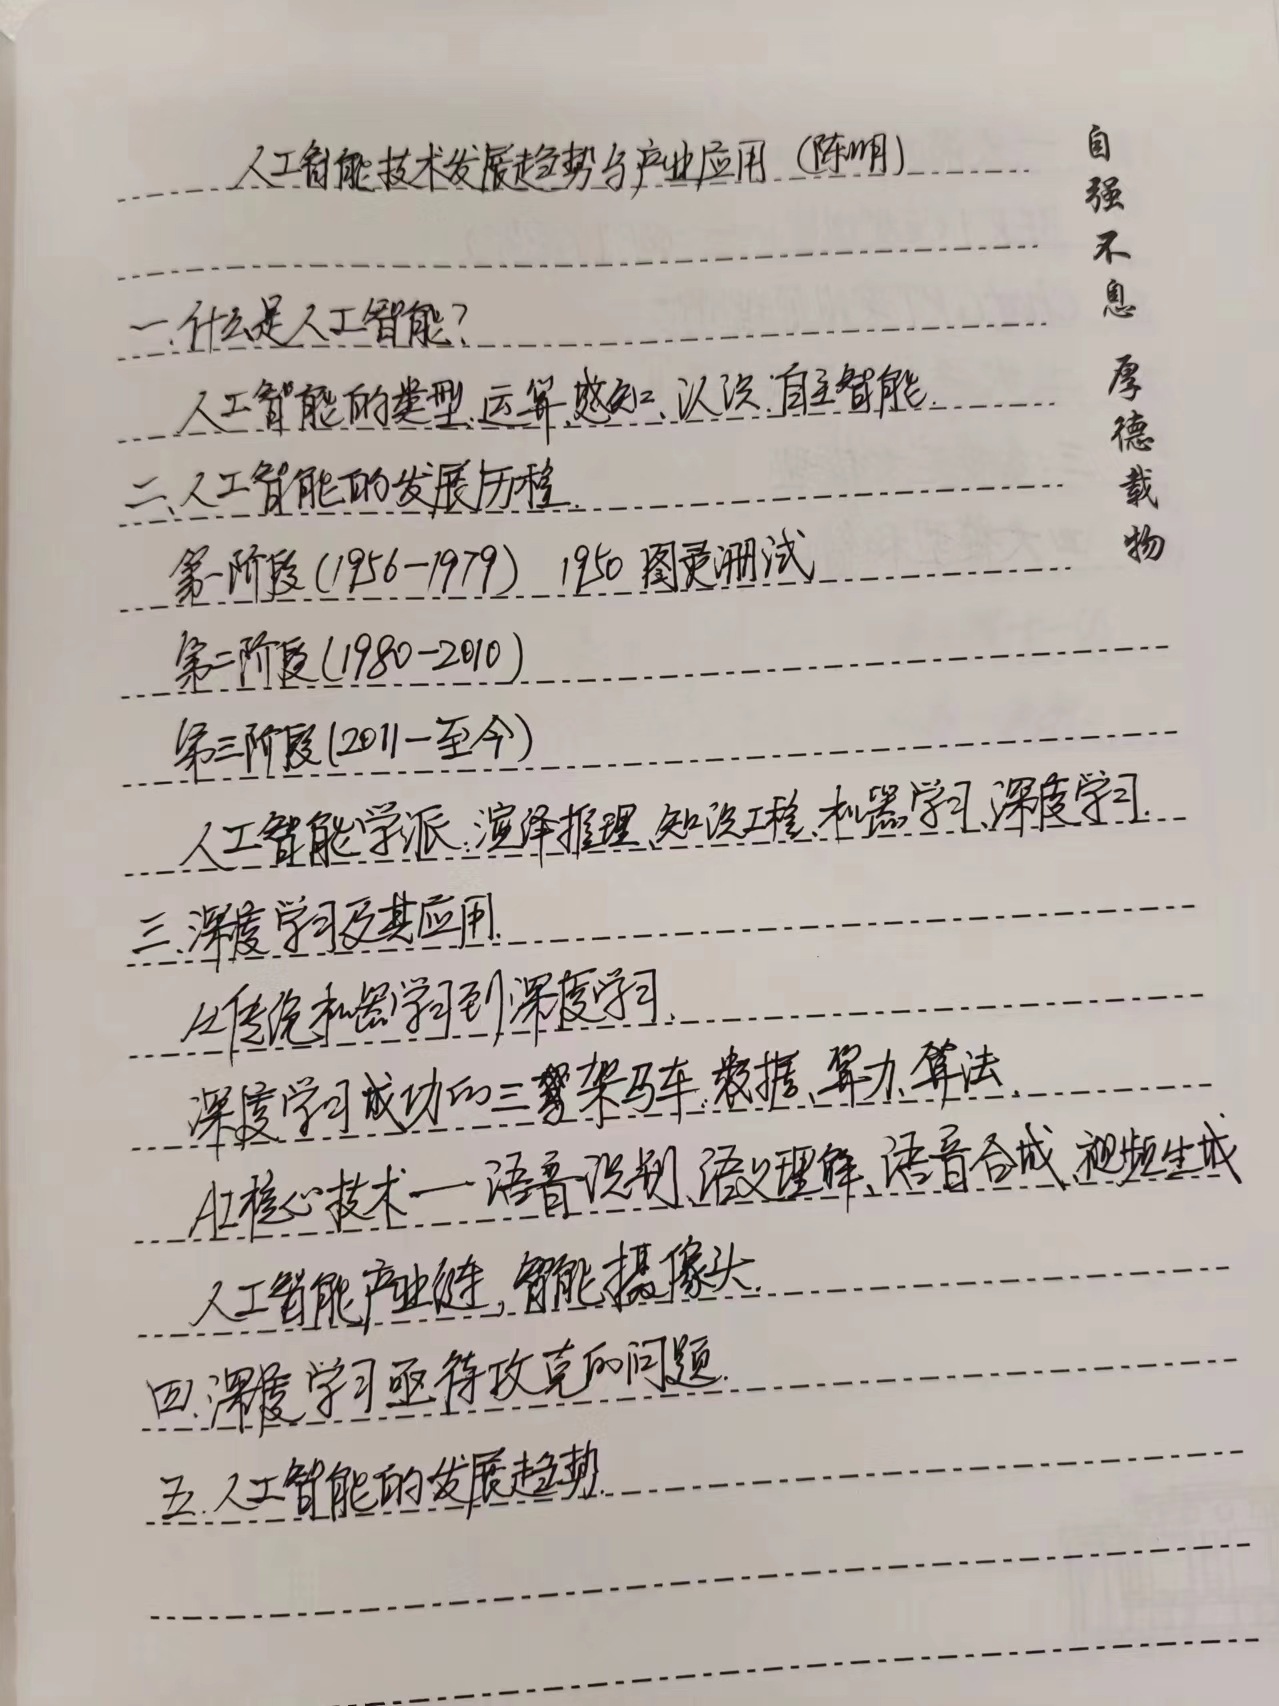 人工智能技术发展趋势与产业应用（陈明）
自强不息 厚德载物
一.什么是人工智能?
人工智能的类型、运算、感知、认识、自主智能.
二、人工智能的发展历程.
第一阶段(1956-1979) 1950 图灵测试
第二阶段(1980-2010)
第三阶段(2011-至今)
人工智能学派、演绎推理、知识工程、机器学习、深度学习.
三、深度学习及其应用.
从传统机器学习到深度学习.
深度学习成功的三驾马车.数据、算力、算法.
AI核心技术—语音识别、语义理解、语音合成、视频生成
人工智能产业链,智能摄像头.
四.深度学习亟待攻克的问题.
五.人工智能的发展趋势.